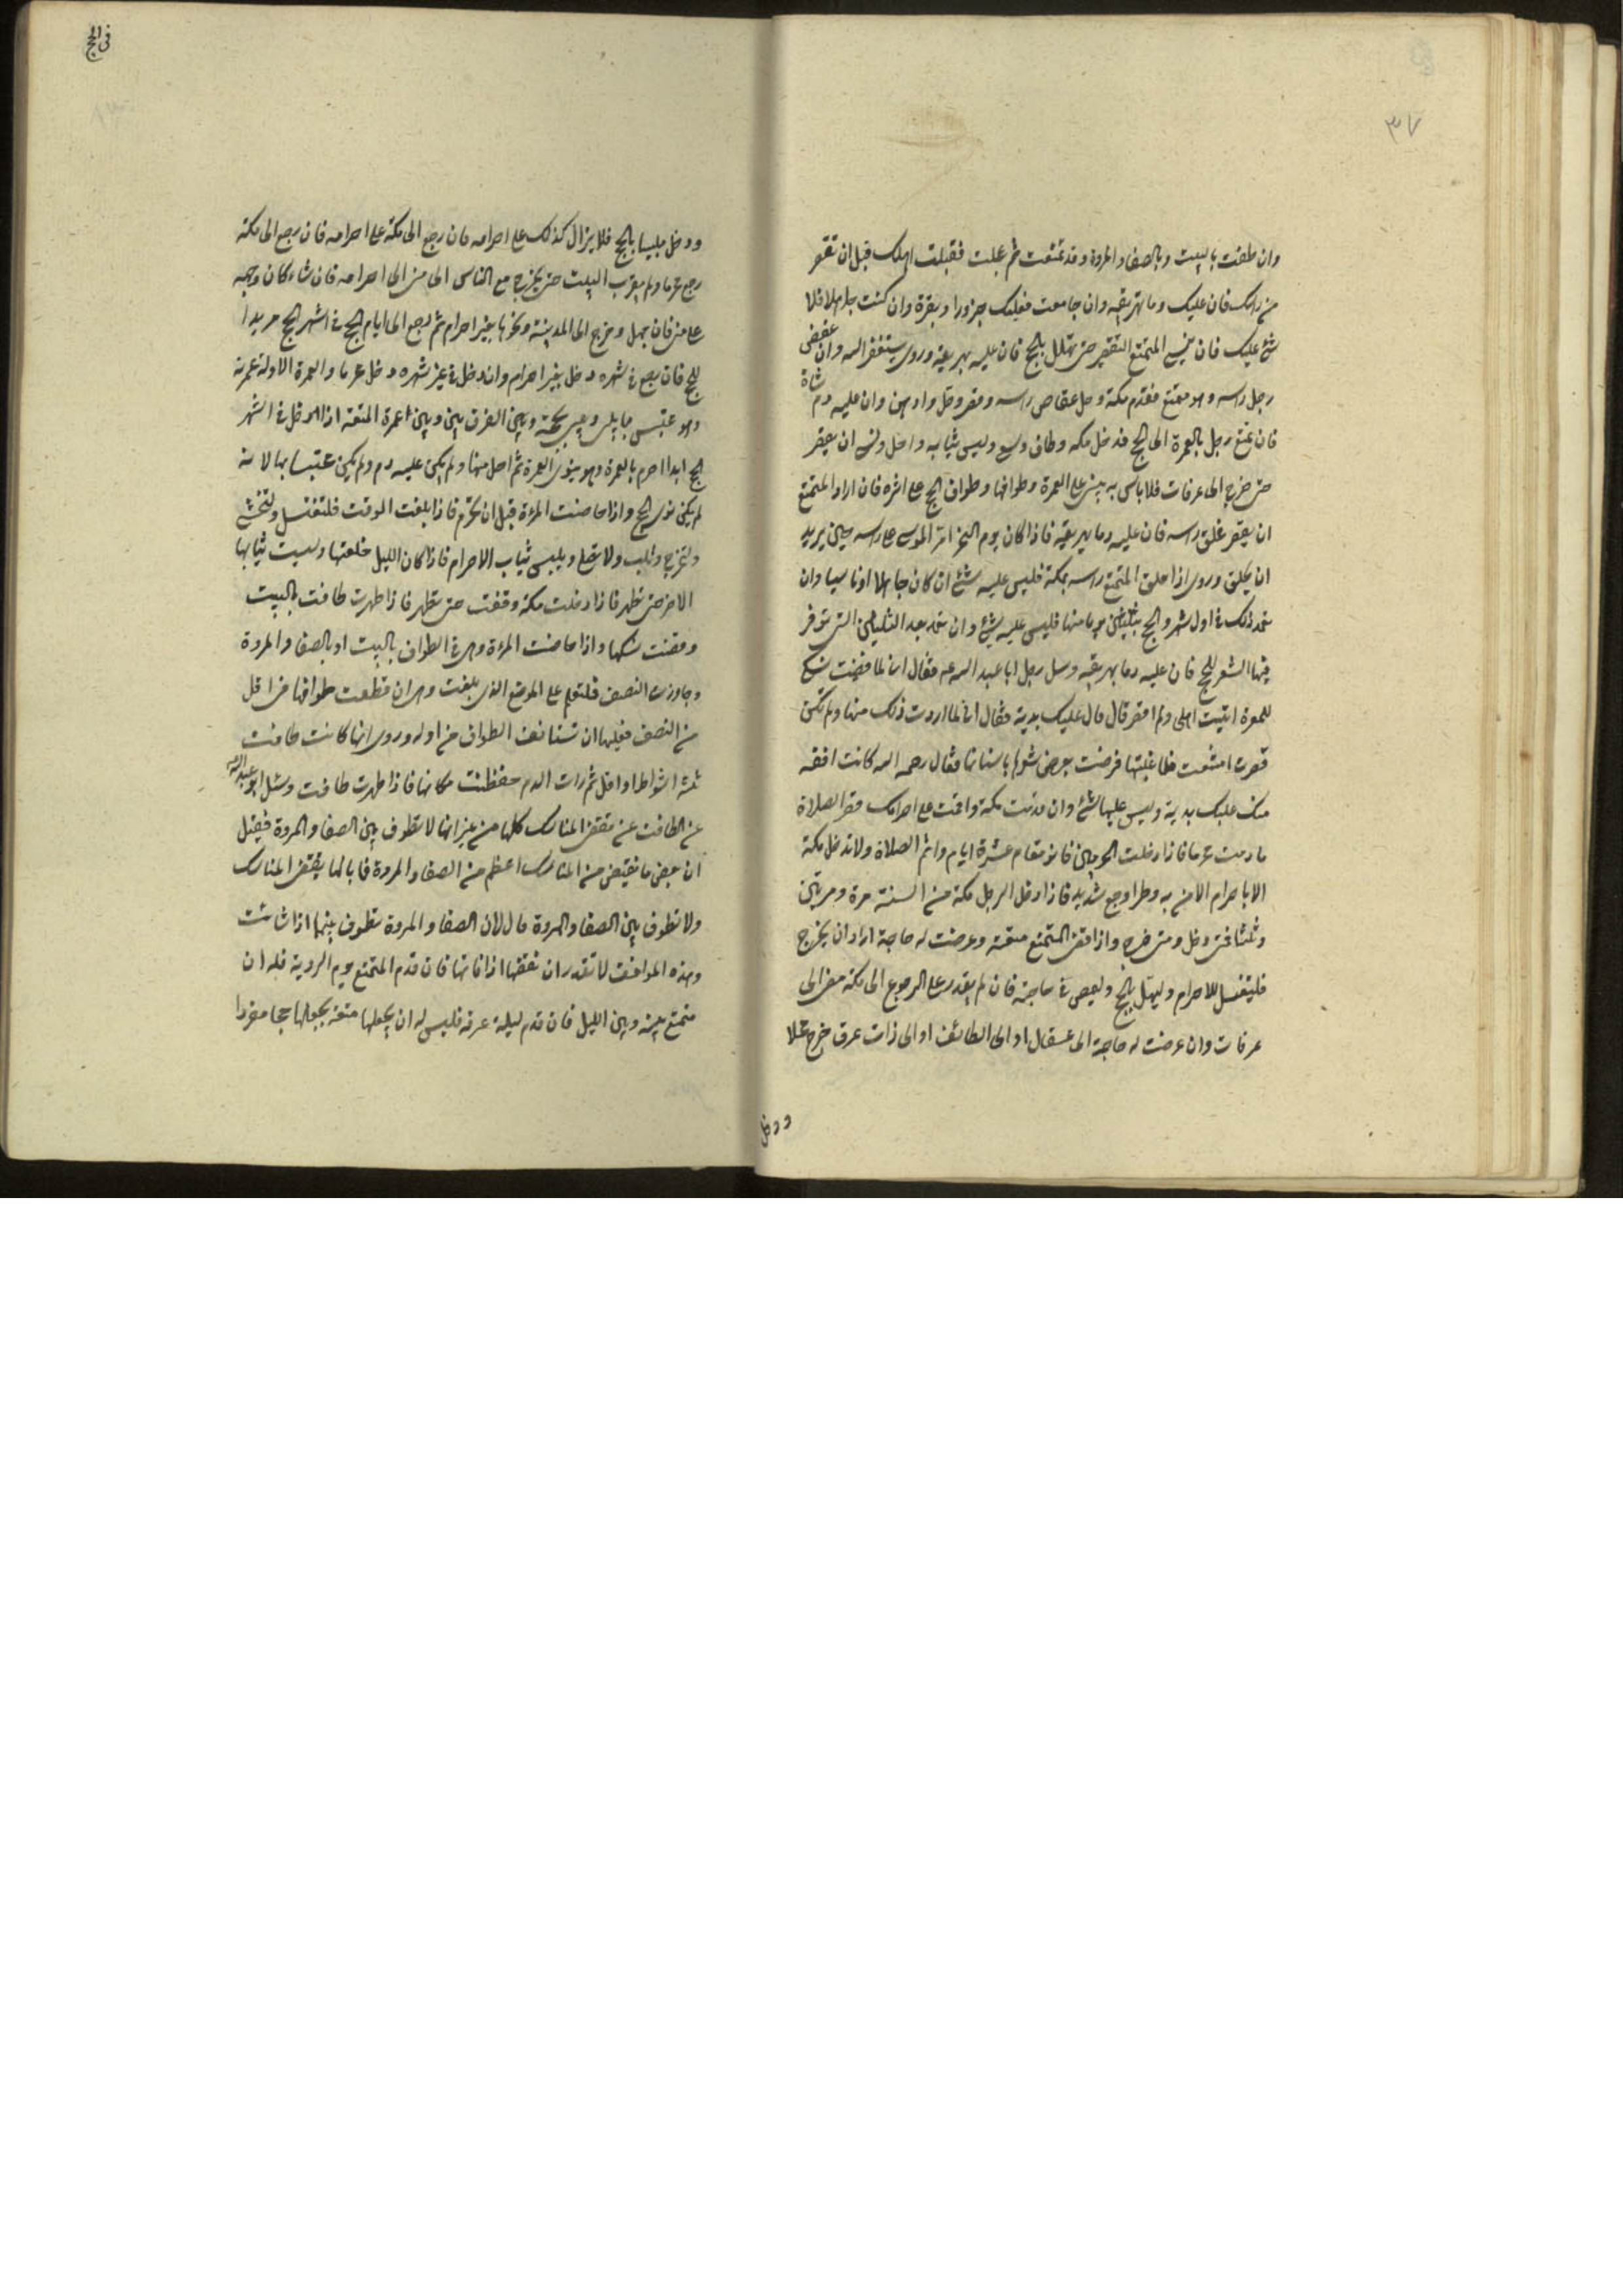 ٣٧
وان طفت بالبيت وبالصفا والمروة وقد تمتعت ثم عجلت فقبلت اهلك قبل ان تقصر
من راسك فان عليك دما تهريقه وان جامعت فعليك جزورا وبقرة وان كنت جاهلا فلا
شئ عليك فان نسي المتمتع التقصير حتى يهلل بالحج فان عليه دم يهريقه وروى يستغفر الله وان عقص
رجل راسه وهو متمتع فقدم مكة وحل عقاص راسه وقصر وحل وادهن وان عليه دم شاة
فان تمتع رجل بالعمرة الى الحج فدخل مكه وطاف وسعى ولبس ثيابه واحل ونسى ان يقصر
حتى خرج الى عرفات فلا باس به يبنى على العمرة وطوافها وطواف الحج على اثره فان اراد المتمتع
ان يقصر فحلق راسه فان عليه دما يهريقه فاذا كان يوم النحر امر الموسى على راسه حين يريد
ان يحلق وروى اذا حلق المتمتع راسه بمكة فليس عليه شئ ان كان جاهلا او ناسيا وان
تعمد ذلك في اول شهور الحج بثلثين يوما منها فليس عليه شئ وان تعمد بعد الثلثين التى توفر
فيها الشعر للحج فان عليه دما يهريقه وسل رجل ابا عبد الله عه فقال انى لما قضيت نسكى
للعمرة اتيت اهلى ولم اقصر قال قال عليك بدنة فقال انى لما اردت ذلك منها ولم تكن
قصرت امتنعت فلما غلبتها قرضت بعض شعرها باسنانها فقال رحمه الله كانت افقه
منك عليك بدنة وليس عليها شئ وان قدمت مكة واقمت على احرامك فقصر الصلاة
ما دمت محرما فاذا دخلت الحرمين فانو مقام عشرة ايام واتم الصلاة ولا تدخل مكة
الا باحرام الا من به وطرا وجع شديد فاذا دخل الرجل مكة من السنة مرة ومرتين
وثلثا فمتى دخل ومتى خرج واذا قضى المتمتع متعته وعرضت له حاجة اراد ان يخرج
فليغتسل للاحرام وليهل بالحج وليمض في حاجته فان لم يقدر على الرجوع الى مكة مضى الى
عرفات وان عرضت له حاجة الى عسفان او الى الطائف او الى ذات عرق خرج محلا
ودخل
فى الحج
ودخل ملبيا بالحج فلا يزال كذلك على احرامه فان رجع الى مكة على احرامه فان رجع الى مكة
رجع محرما ولم يقرب البيت حتى يخرج مع الناس الى منى الى احرامه فان شاء كان وجهه
على منى فان جهل وخرج الى المدينة ونحوها بغير احرام ثم رجع الى ايام الحج في اشهر الحج مريدا
للحج فان رجع في شهره دخل بغير احرام وان دخل في غير شهره دخل محرما والعمرة الاولة عمرته
وهو محتبس بها وبين الفرق بين وبين اعمرة المتعة اذا دخل في اشهر
الحج ابدا احرم بالعمرة وهو ينوى العمرة ثم احل منها ولم يكن عليه دم ولم يكن محتبسا بها لانه
لم يكن نوى الحج واذا حاضت المرءة قبل ان تحرم فاذا بلغت الوقت فلتغتسل ولتحتشى
ولتخرج وتلب ولا تصل ويلبس ثياب الاحرام فاذا كان الليل خلعتها ولبست ثيابها
الاخر حتى تطهر فاذا دخلت مكة وقفت حتى تطهر فاذا طهرت طافت بالبيت
وقضت نسكها واذا حاضت المرءة وهى في الطواف بالبيت او بالصفا والمروة
وجاوزت النصف فلتعلم على الموضع الذى بلغت وهى ان قطعت طوافها في اقل
من النصف فعليها ان تستانف الطواف من اوله وروى انها كانت طافت
ثلثة اشواط او اقل ثم رات الدم حفظت مكانها فاذا طهرت طافت وسئل ابو عبد الله
عن الطامث عن تقضى المناسك كلها من غير انها لا تطوف بين الصفا والمروة فقيل
ان بعض ما تقضى من المناسك اعظم من الصفا والمروة فما بالها يقضى المناسك
ولا تطوف بين الصفا والمروة قال لان الصفا والمروة تطوف بينهما اذا شائت
وهذه المواقف لا تقدر ان تقضيها اذا فاتها فان قدم المتمتع يوم التروية فله ان
يتمتع بينه وبين الليل فان قدم ليلة عرفة فليس له ان يجعلها متعة يجعلها حجا مفردا